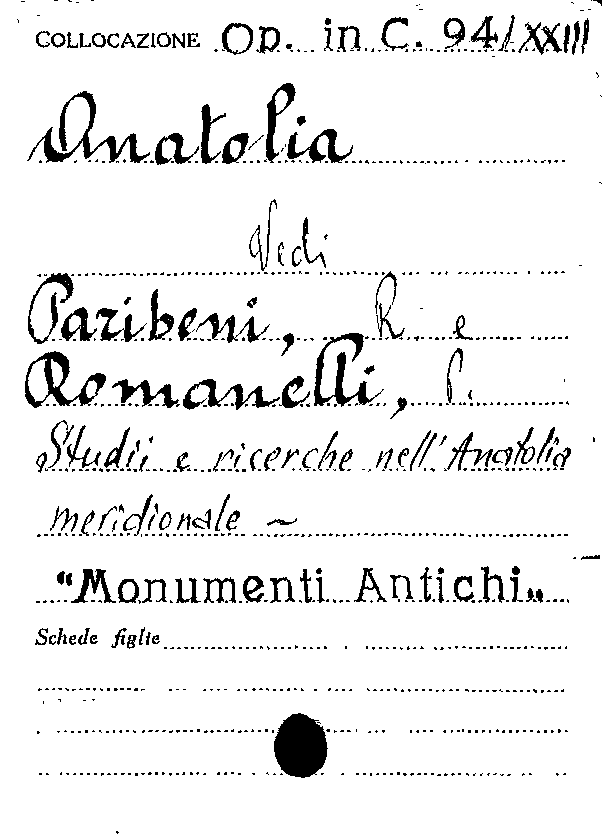 COLLOCAZIONE Op. in C. 94/XXIII
Anatolia
Vedi
Paribeni, R. e
Romanelli, P.
Studii e ricerche nell'Anatolia
meridionale ~
“Monumenti Antichi„
Schede figlie